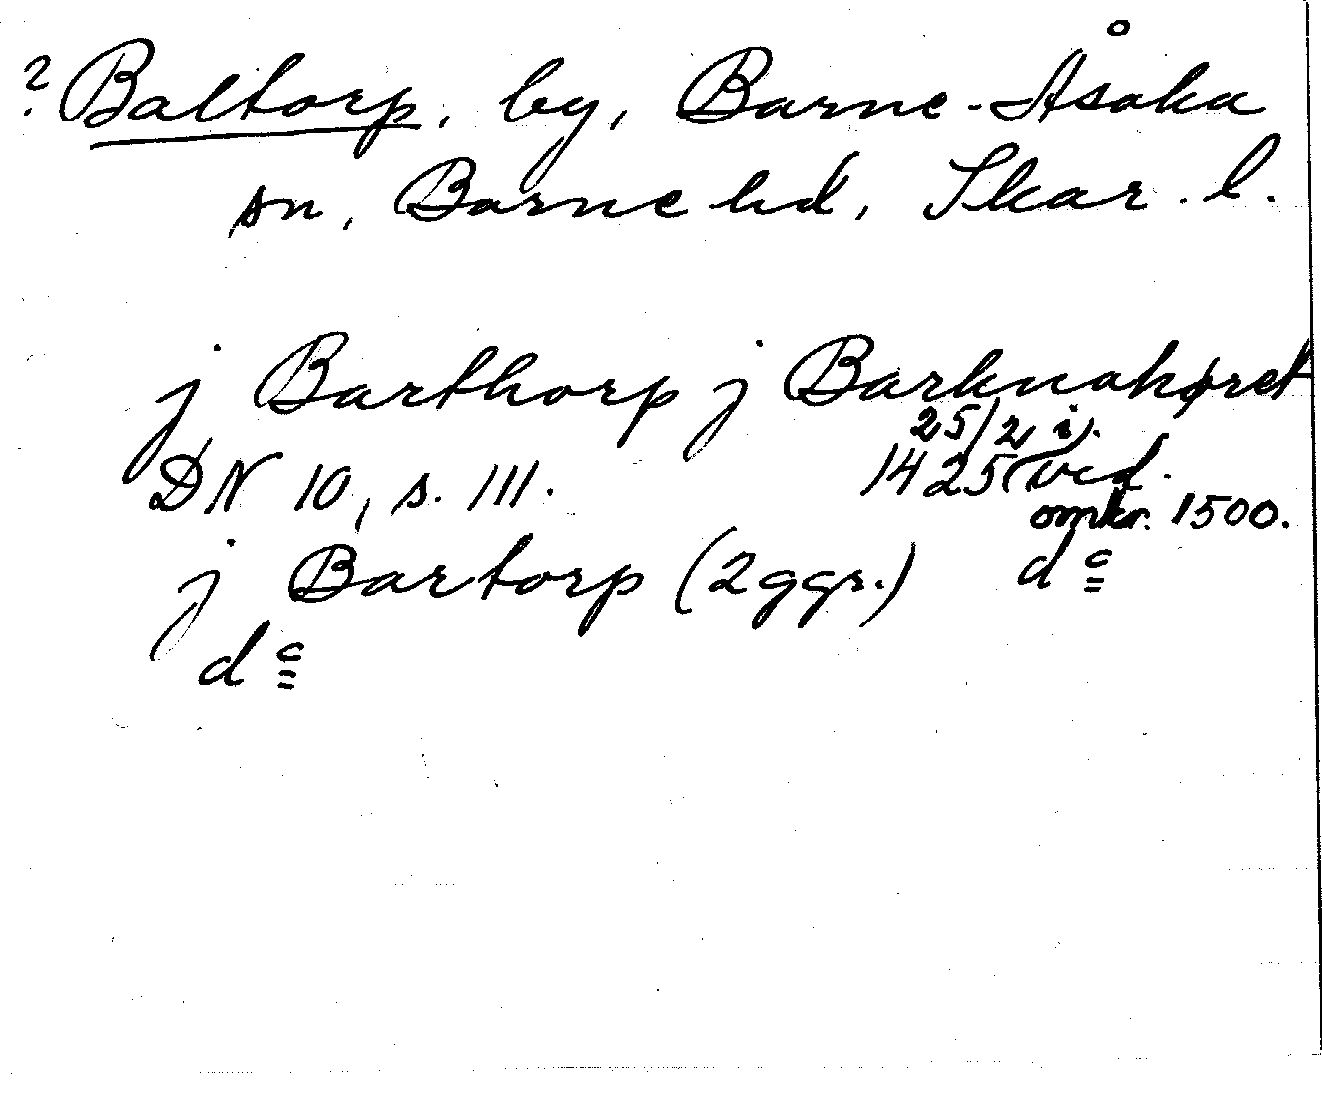 ? Baltorp, by, Barne-Åsaka
sn, Barne hd, Skar. l.
j Barthorp j Barknahæret
DN 10, s. 111. 25/2 1425 (i vid. omkr. 1500.
j Bartorp (2 ggr.) do
do